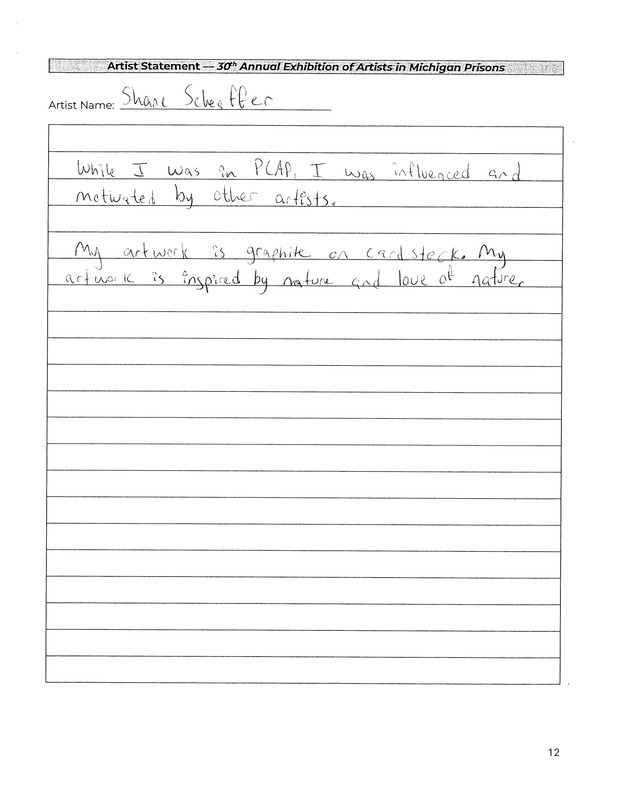 Artist Statement — 30th Annual Exhibition of Artists in Michigan Prisons
Artist Name: Shane Scheaffer
While I was in PCAP, I was influenced and
motivated by other artists.
My artwork is graphite on cardstock. My
artwork is inspired by nature and love of nature.
12